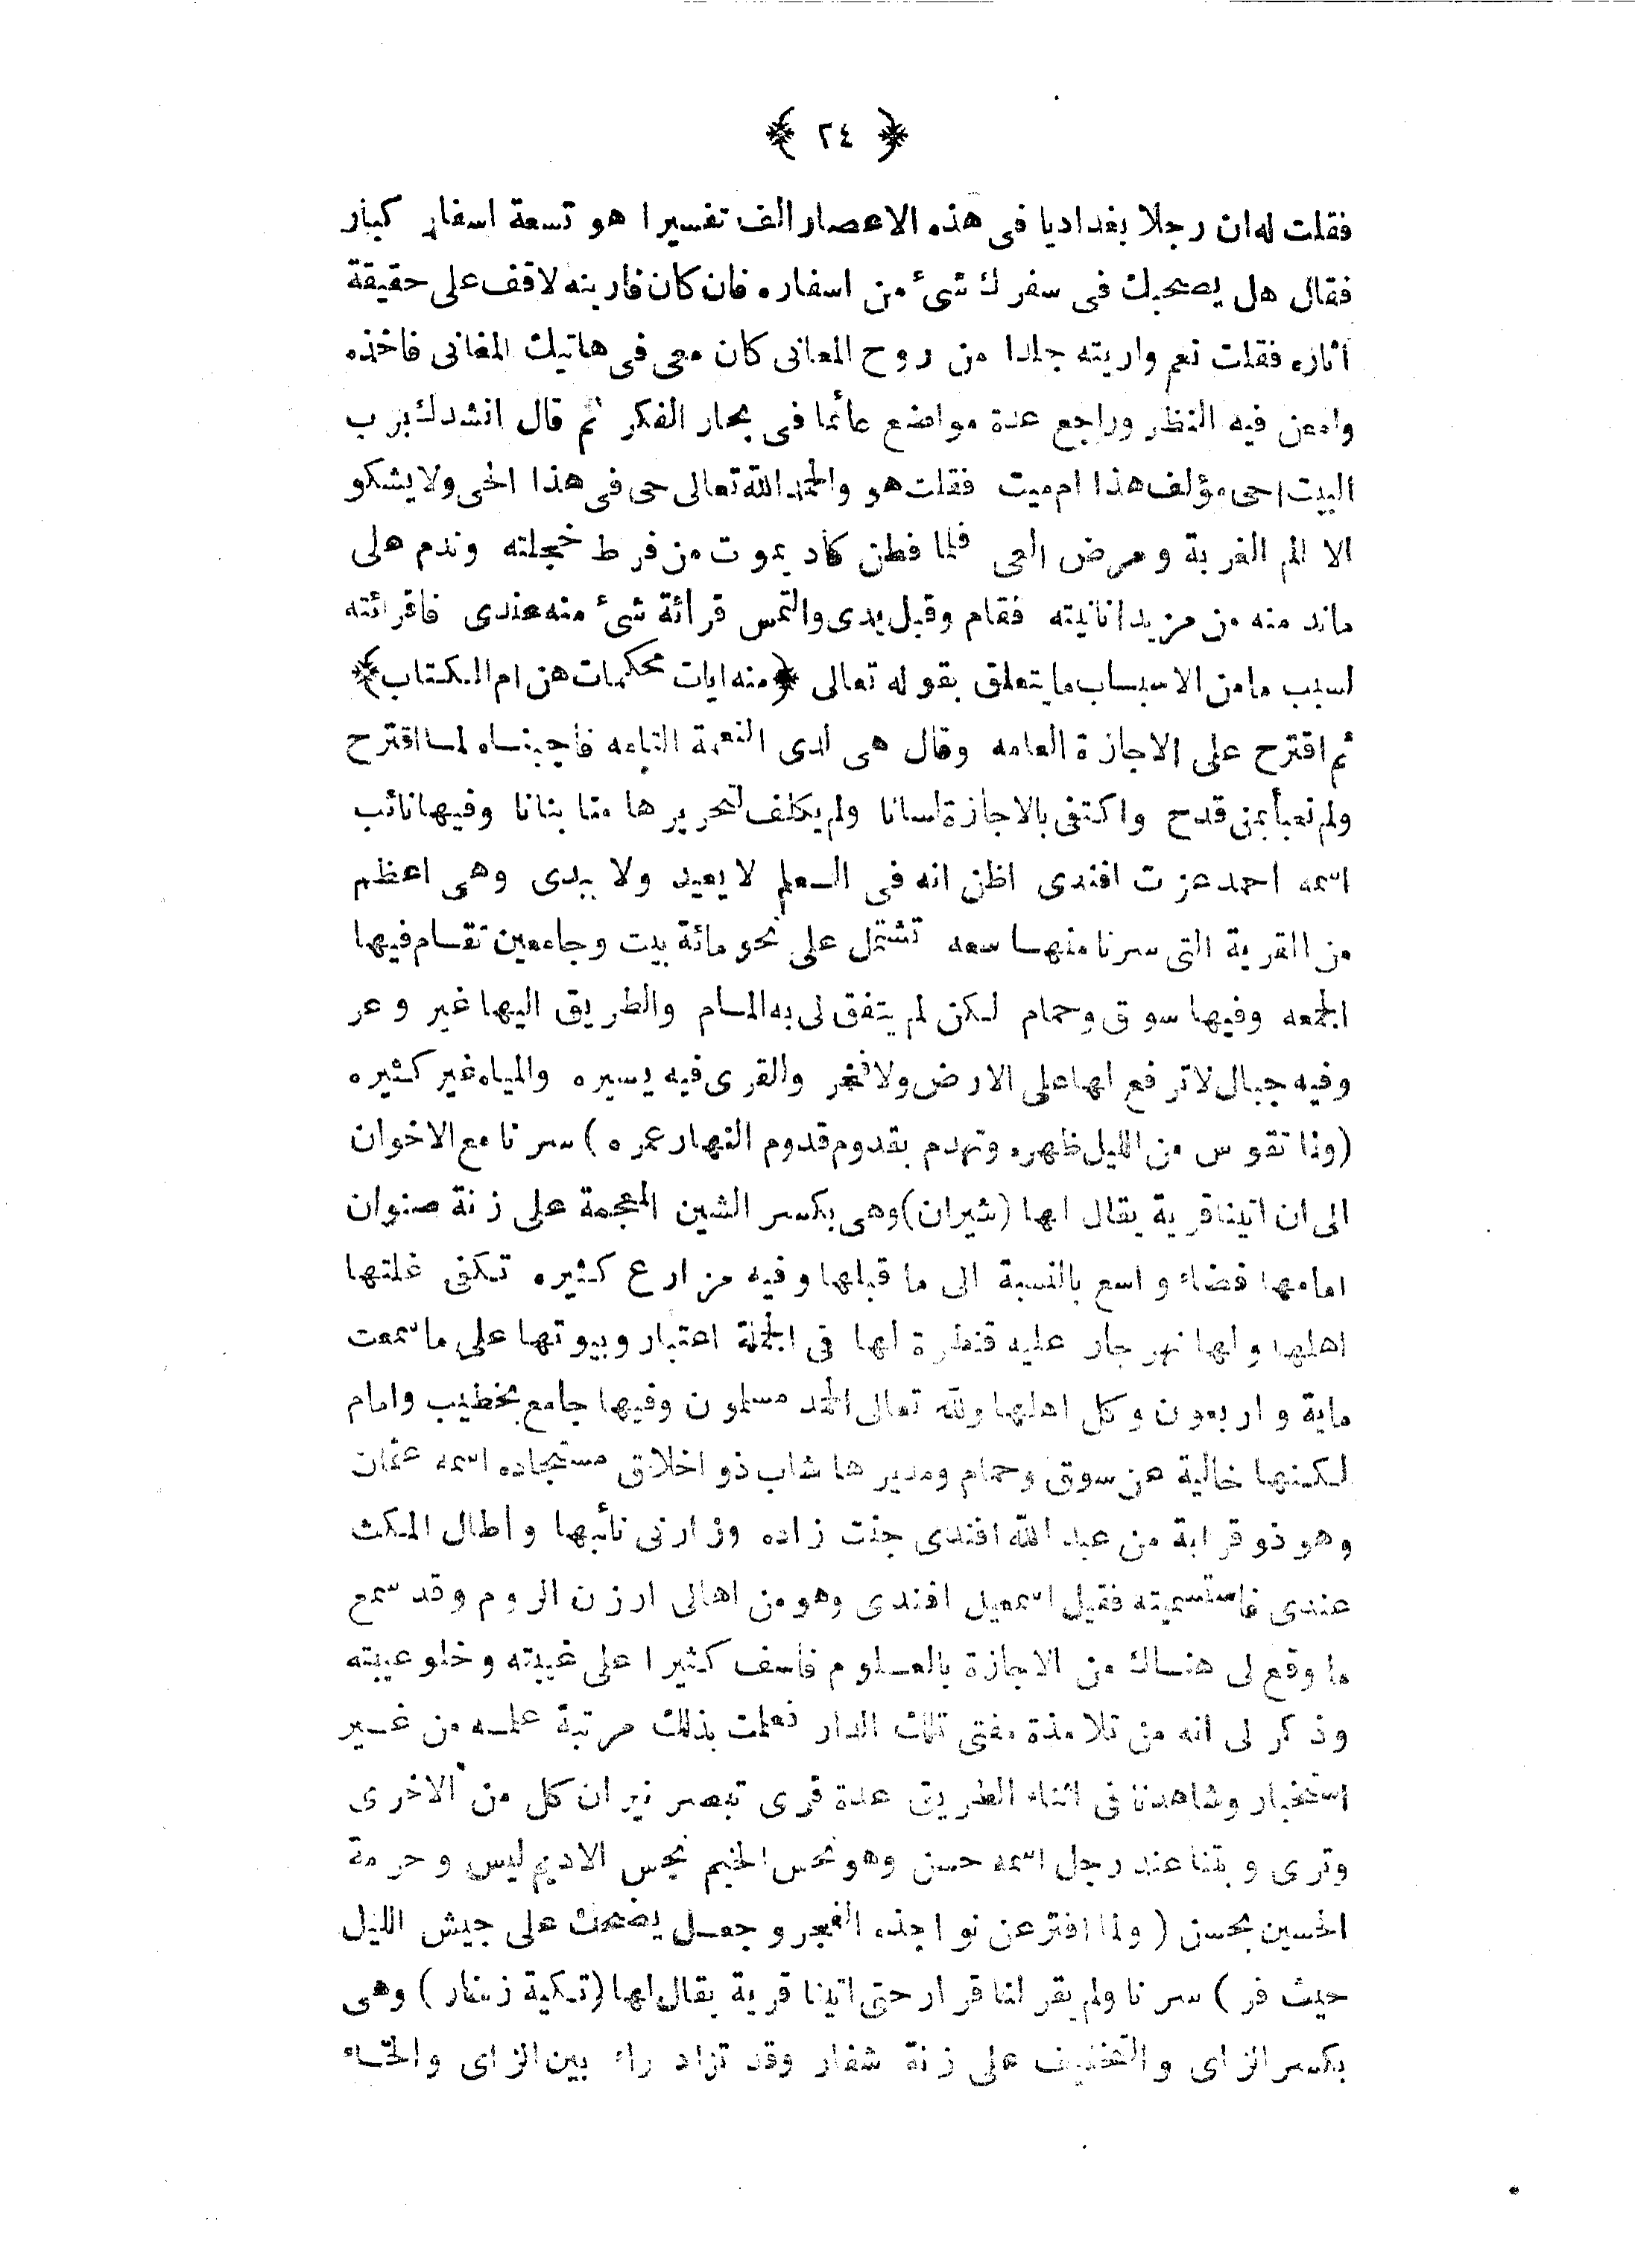 ﴿ ٢٤ ﴾
فقلت له ان رجلا بغداديا فى هذه الاعصار الف تفسيرا هو تسعة اسفار كبار
فقال هل يصحبك فى سفرك شئ من اسفاره فان كان فارينه لاقف على حقيقة
آثاره فقلت نعم واريته جلدا من روح المعانى كان معى فى هاتيك المغانى فاخذه
وامعن فيه النظر وراجع عدة مواضع عائما فى بحار الفكر ثم قال انشدك برب
البيت احى مؤلف هذا ام ميت فقلت هو والحمد الله تعالى حى فى هذا الحى ولا يشكو
الا الم الغربة ومرض العى فلما فطن كاد يموت من فرط خجلته وندم على
ماند منه من مزيد انانيته فقام وقبل يدى والتمس قرائة شئ منه عندى فاقرائته
لسبب ما من الاسباب ما يتعلق بقوله تعالى ﴿ منه ايات محكمات هن ام الكتاب ﴾
ثم اقترح على الاجازة العامه وقال هى لدى النعمة التامه فاجبناه لما اقترح
ولم نعبأ بمن قدح واكتفى بالاجازة لسانا ولم يكلف لتحريرها منا بنانا وفيها نائب
اسمه احمد عزت افندى اظن انه فى العلم لا يعيد ولا يبدى وهى اعظم
من القرية التى سرنا منها سعه تشتمل على نحو مائة بيت وجامعين تقام فيها
الجمعه وفيها سوق وحمام لكن لم يتفق لى به المام والطريق اليها غير وعر
وفيه جبال لا ترفع لها على الارض ولا فخر والقرى فيه يسيره والمياه غير كثيره
(ولما تقوس من الليل ظهره وتهدم بقدوم قدوم النهار عمره) سرنا مع الاخوان
الى ان اتينا قرية يقال لها (شيران) وهى بكسر الشين المعجمة على زنة صنوان
امامها فضاء واسع بالنسبة الى ما قبلها وفيه مزارع كثيره تكفى غلتها
اهلها ولها نهر جار عليه قنطرة لها فى الجملة اعتبار وبيوتها على ما سمعت
ماية واربعون وكل اهلها ولله تعالى الحمد مسلمون وفيها جامع بخطيب وامام
لكنها خالية عن سوق وحمام ومديرها شاب ذو اخلاق مستجاده اسمه عثمان
وهو ذو قرابة من عبد الله افندى جنت زاده وزارنى نائبها واطال المكث
عندى فاستسميته فقيل اسمعيل افندى وهو من اهالى ارزن الروم وقد سمع
ما وقع لى هناك من الاجازة بالعلوم فاسف كثيرا على غيبته وخلو عيبته
وذكر لى انه من تلامذة مفتى تلك الدار فعلمت بذلك مرتبة علمه من غير
استخبار وشاهدنا فى اثناء الطريق عدة قرى تبصر نيران كل من الاخرى
وترى وبتنا عند رجل اسمه حسن وهو نحس الخيم نجس الاديم ليس وحرمة
الحسين بحسن (ولما افتر عن نواجذه الفجر وجعل يضحك على جيش الليل
حيث فر) سرنا ولم يقر لنا قرار حتى اتينا قرية يقال لها (تكية زخار) وهى
بكسر الزاى والتخفيف على زنة شفار وقد تزاد راء بين الزاى والخاء